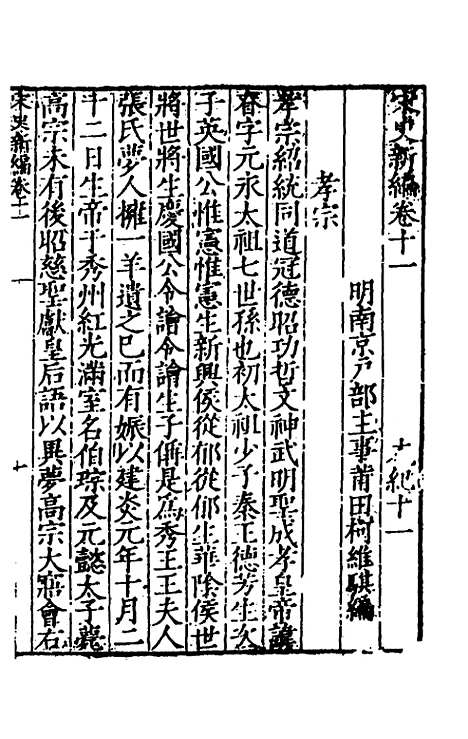 宋史新編卷十一 本紀十一
明南京戸部主事莆田柯維騏編
孝宗
孝宗紹統同道冠德昭功哲文神武明聖成孝皇帝諱
眘字元永太祖七世孫也初太祖少子秦王德芳生
子英國公惟憲惟憲生新興侯從郁從郁生華陰侯世
將世將生慶國公令譮令譮生子偁是爲秀王王夫人
張氏夢人擁一羊遺之已而有娠以建炎元年十月二
十二日生帝于秀州紅光滿室名伯琮及元懿太子薨
高宗未有後昭慈聖獻皇后語以異夢高宗大寤會右
宋史新編卷十一 一